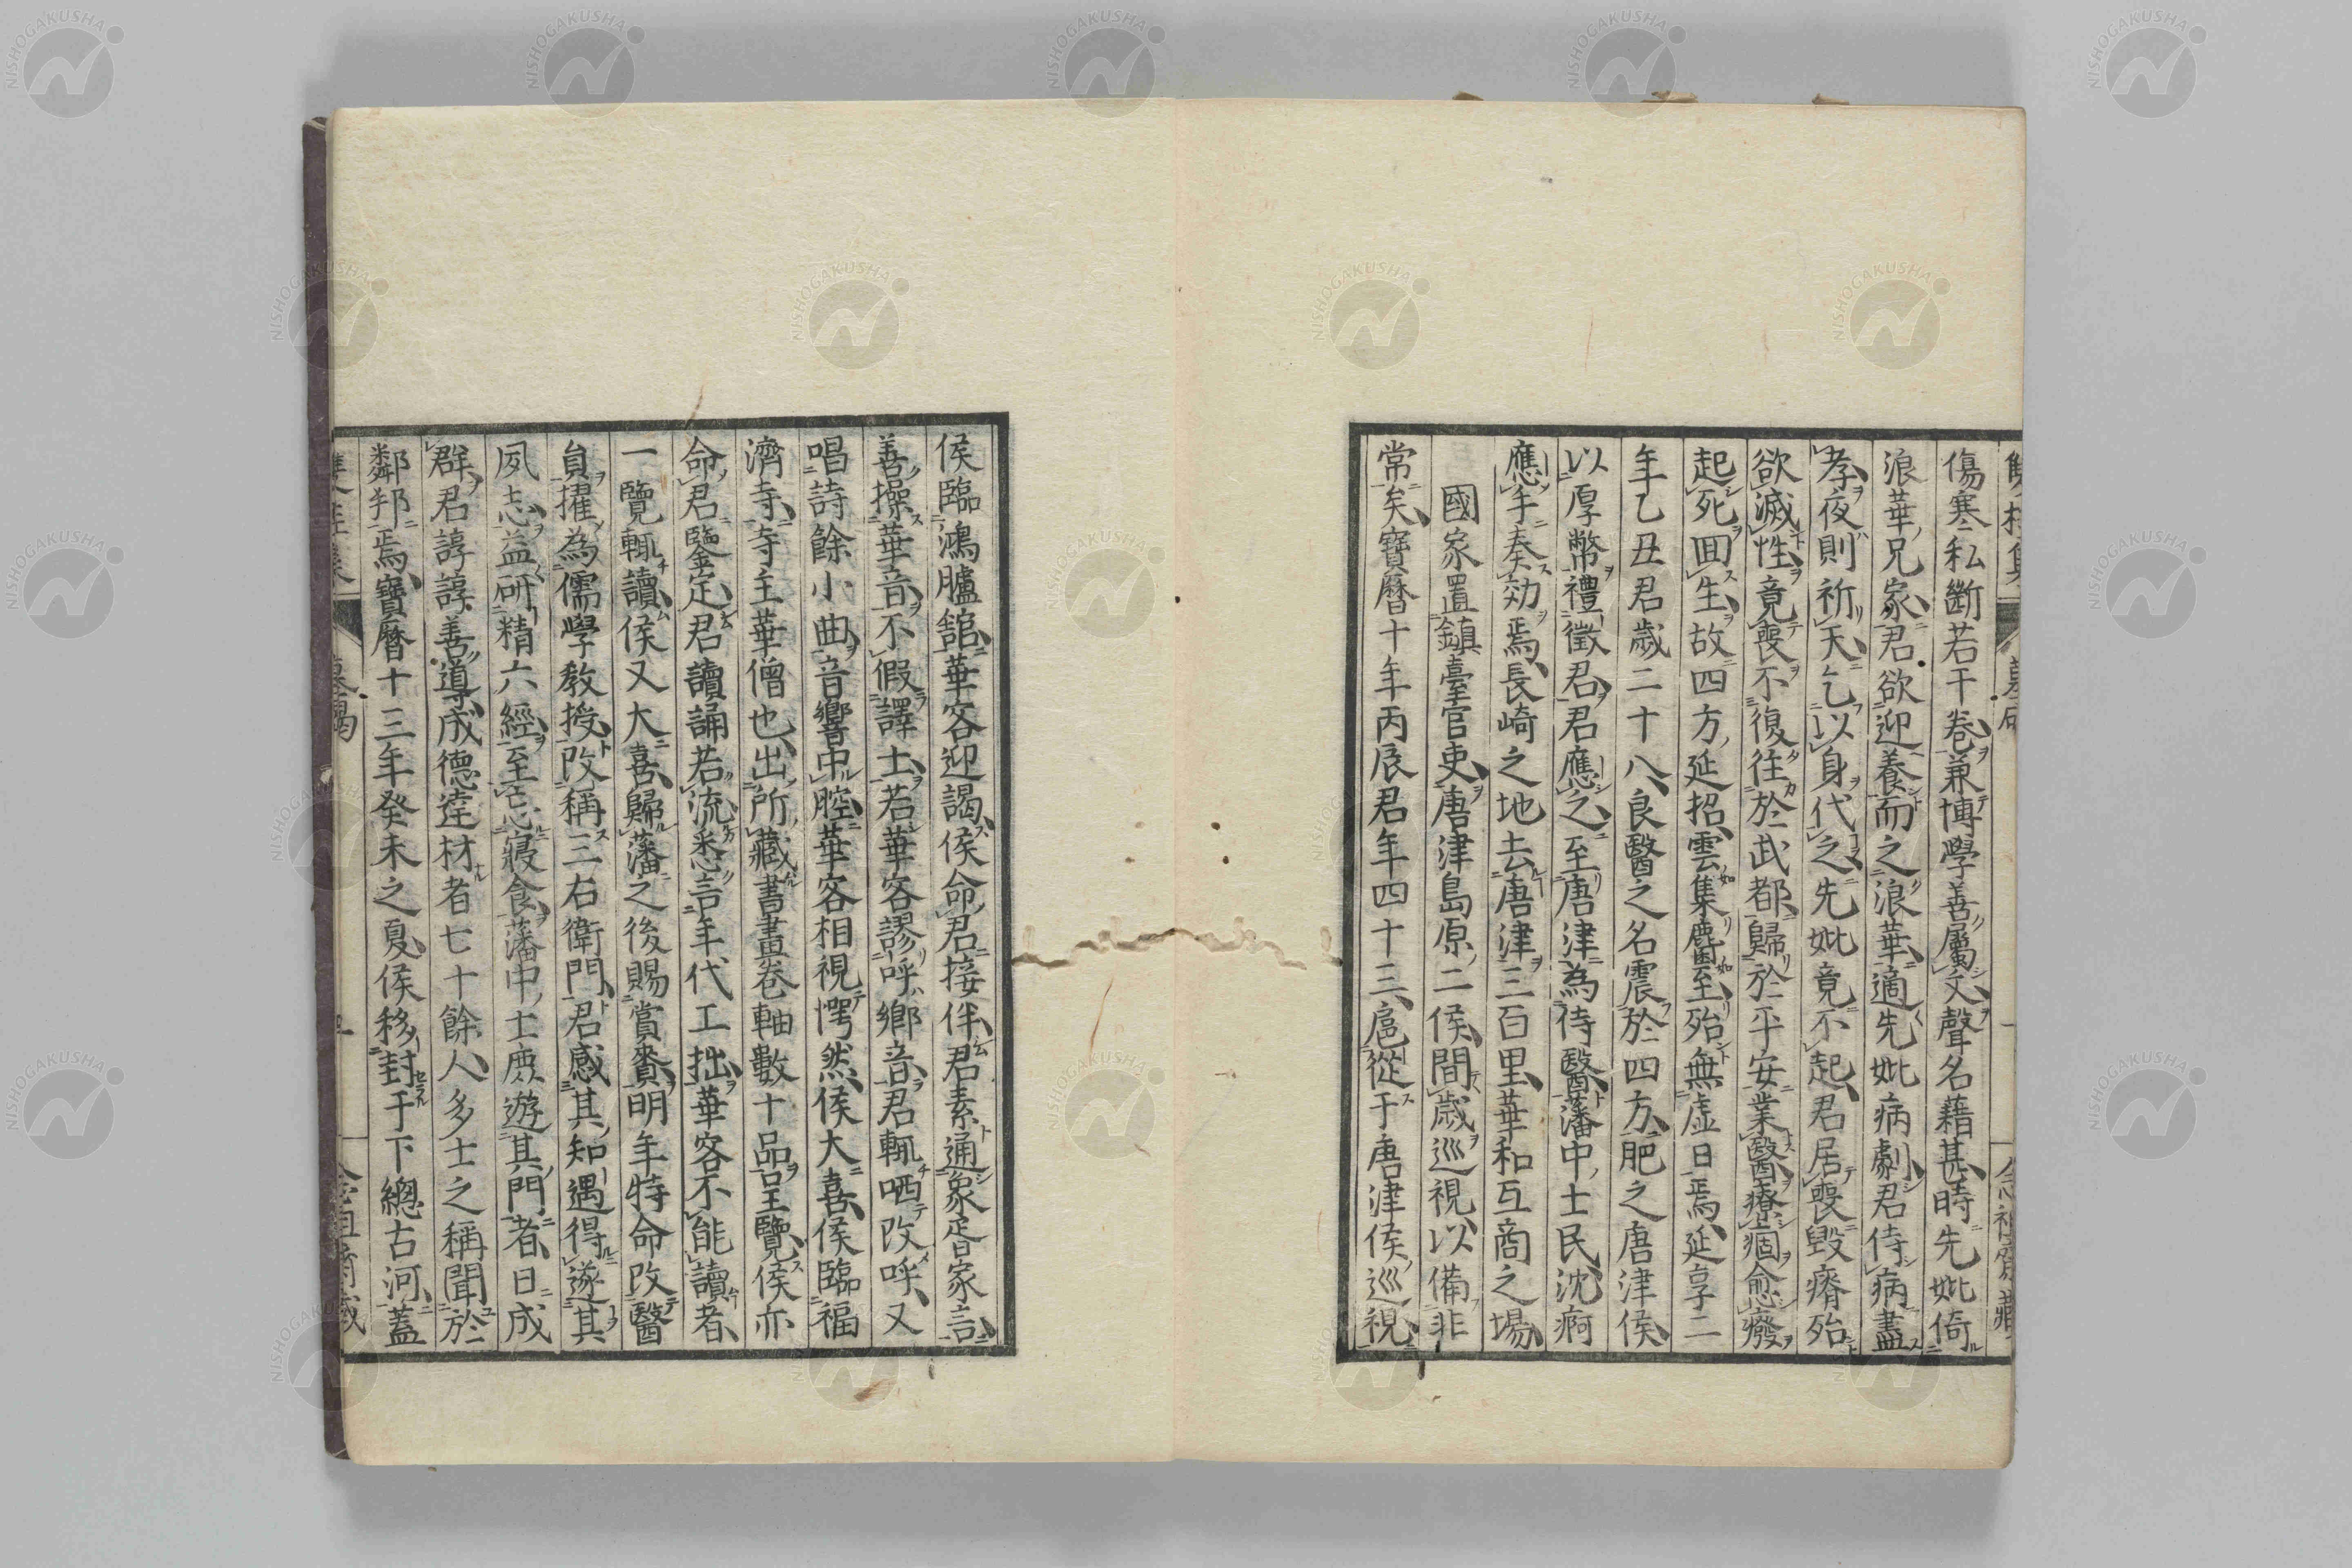 傷寒私斷若干卷兼博學善屬文聲名藉甚時先妣倚
浪華兄家君欲迎養而之浪華適先妣病劇君侍病盡
孝夜則祈天乞以身代之先妣竟不起君居喪毀瘠殆
欲滅性竟喪不復往於武都歸於平安業醫療痼愈癈
起死回生故四方延招雲集麕至殆無虛日焉延享二
年乙丑君歲二十八良醫之名震於四方肥之唐津侯
以厚幣禮徵君君應之至唐津為侍醫藩中士民沈痾
應手奏効焉長崎之地去唐津三百里華和互商之場
國家置鎮臺官吏唐津島原二侯間歲巡視以備非
常矣寶曆十年丙辰君年四十三扈從于唐津侯巡視
侯臨鴻臚舘華客迎謁侯命君接伴君素通象胥家言
善操華音不假譯士若華客謬呼鄉音君輒哂改呼又
唱詩餘小曲音響中腔華客相視愕然侯大喜侯臨福
濟寺寺主華僧也出所藏書畫卷軸數十品呈覽侯亦
命君鑒定君讀誦若流悉言年代工拙華客不能讀者
一覽輒讀侯又大喜歸藩之後賜賞賚明年特命改醫
員擢為儒學教授改稱三右衛門君感其知遇得遂其
夙志益研精六經至忘寢食藩中士庶遊其門者日成
群君諄諄善導成德達材者七十餘人多士之稱聞於
鄰邦焉寶曆十三年癸未之夏侯移封于下總古河蓋